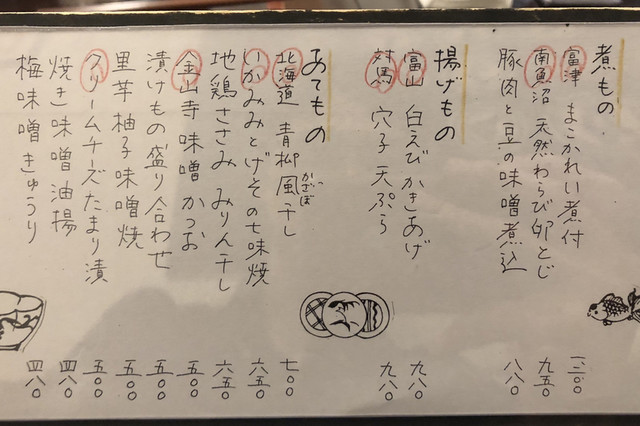 煮もの
富津 まこかれい煮付 一、三〇〇
南魚沼 天然わらび卵とじ 九五〇
豚肉と豆の味噌煮込 八八〇
揚げもの
富山 白えびかきあげ 九八〇
対馬 穴子天ぷら 九八〇
あてもの
北海道 青柳風干し 七〇〇
いかみみとげその七味焼 六五〇
地鶏ささみ みりん干し 六五〇
金山寺味噌 かつお 五〇〇
漬けもの盛り合わせ 五〇〇
里芋 柚子味噌焼 五〇〇
クリームチーズたまり漬 五〇〇
焼き味噌油揚 四八〇
梅味噌きゅうり 四八〇